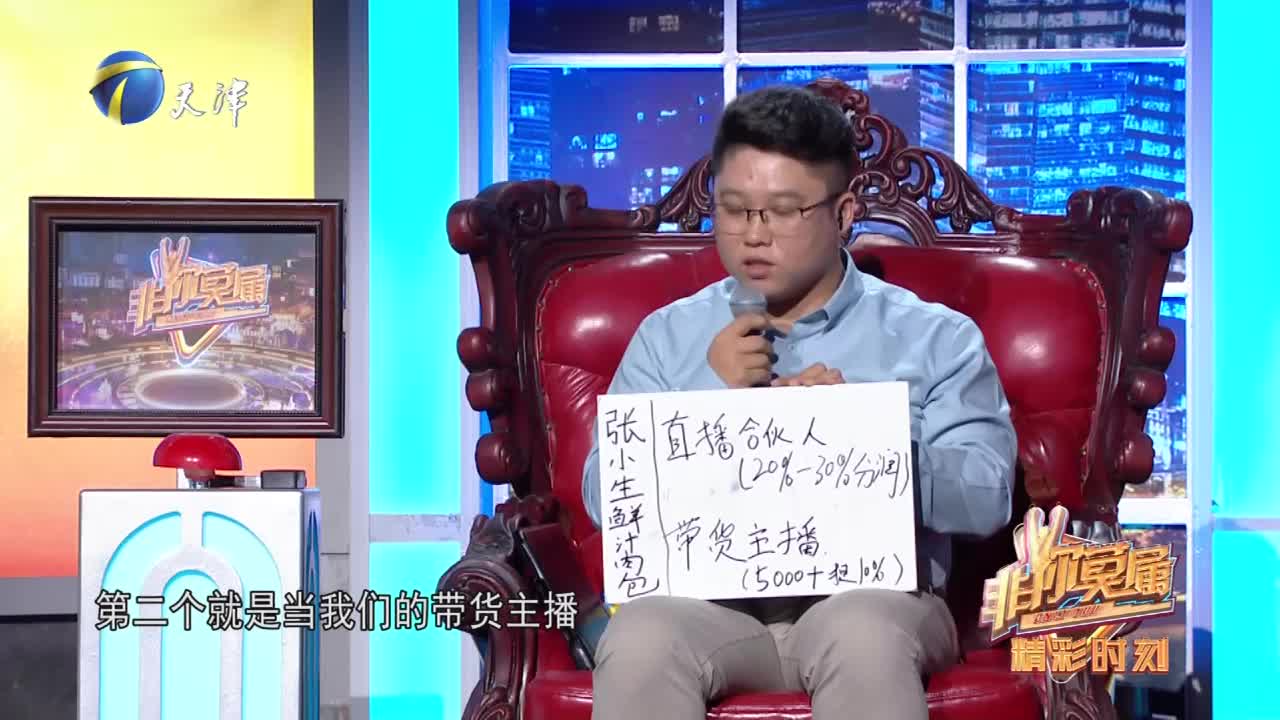 天津
非你莫属
张小生鲜汁肉包
直播合伙人
(20%-30%分润)
带货主播
(5000+提10%)
第二个就是当我们的带货主播
非你莫属
精彩时刻